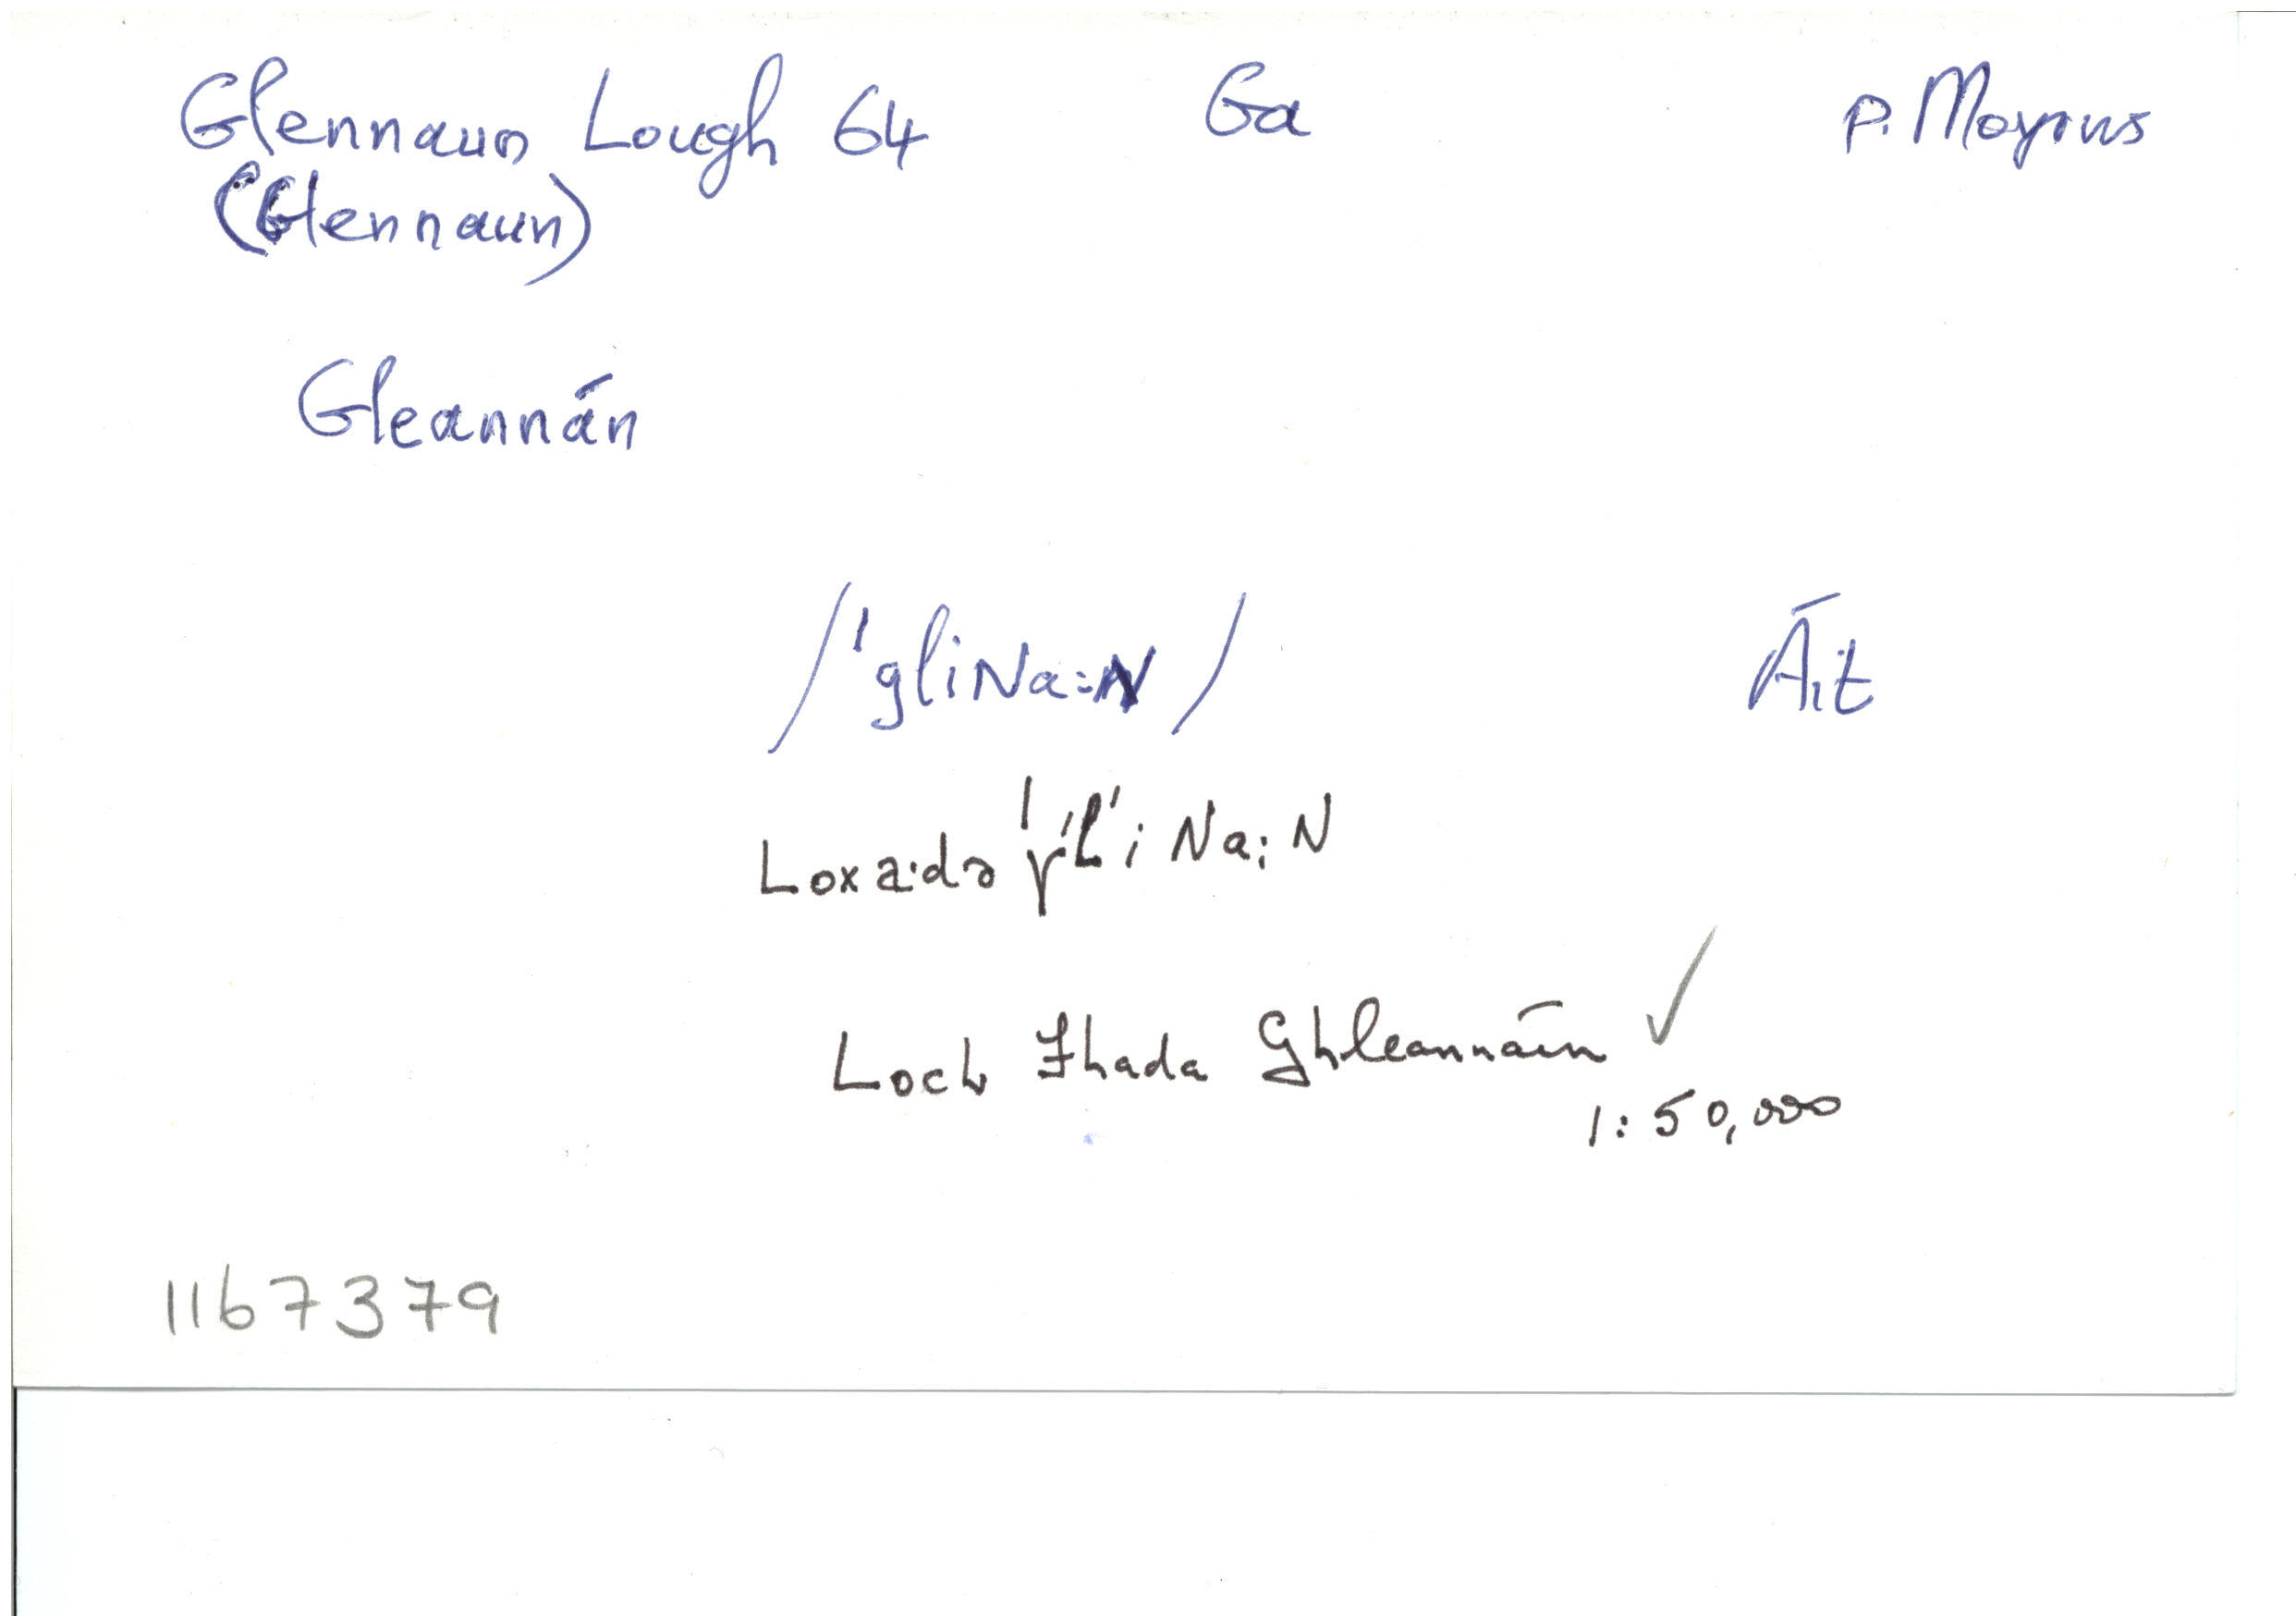 Glennaun Lough 64 Ga P. Moyrus
(Glennaun)
Gleannán
/ˈgliNa:N/ Áit
Loxa·də ˈɣ′L′i Na:N
Loch Fhada Ghleannáin ✓
1:50,000
1167379